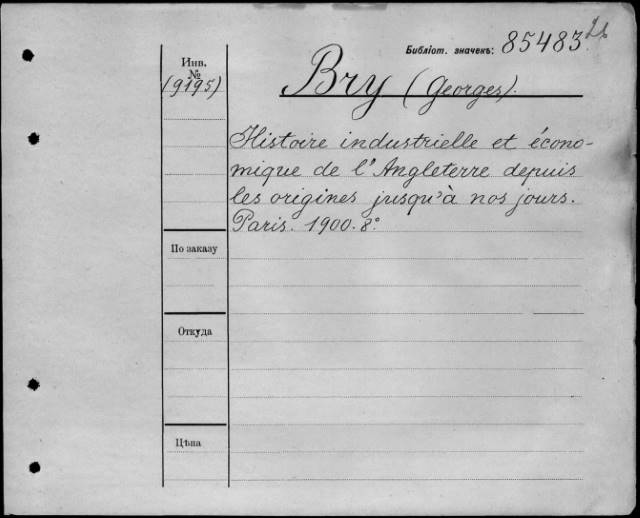 Библіот. значекъ: 85483
Инв.
№
(9195)
Bry (Georges).
Histoire industrielle et écono-
mique de l'Angleterre depuis
les origines jusqu'à nos jours.
Paris. 1900. 8°
По заказу
Откуда
Цѣна